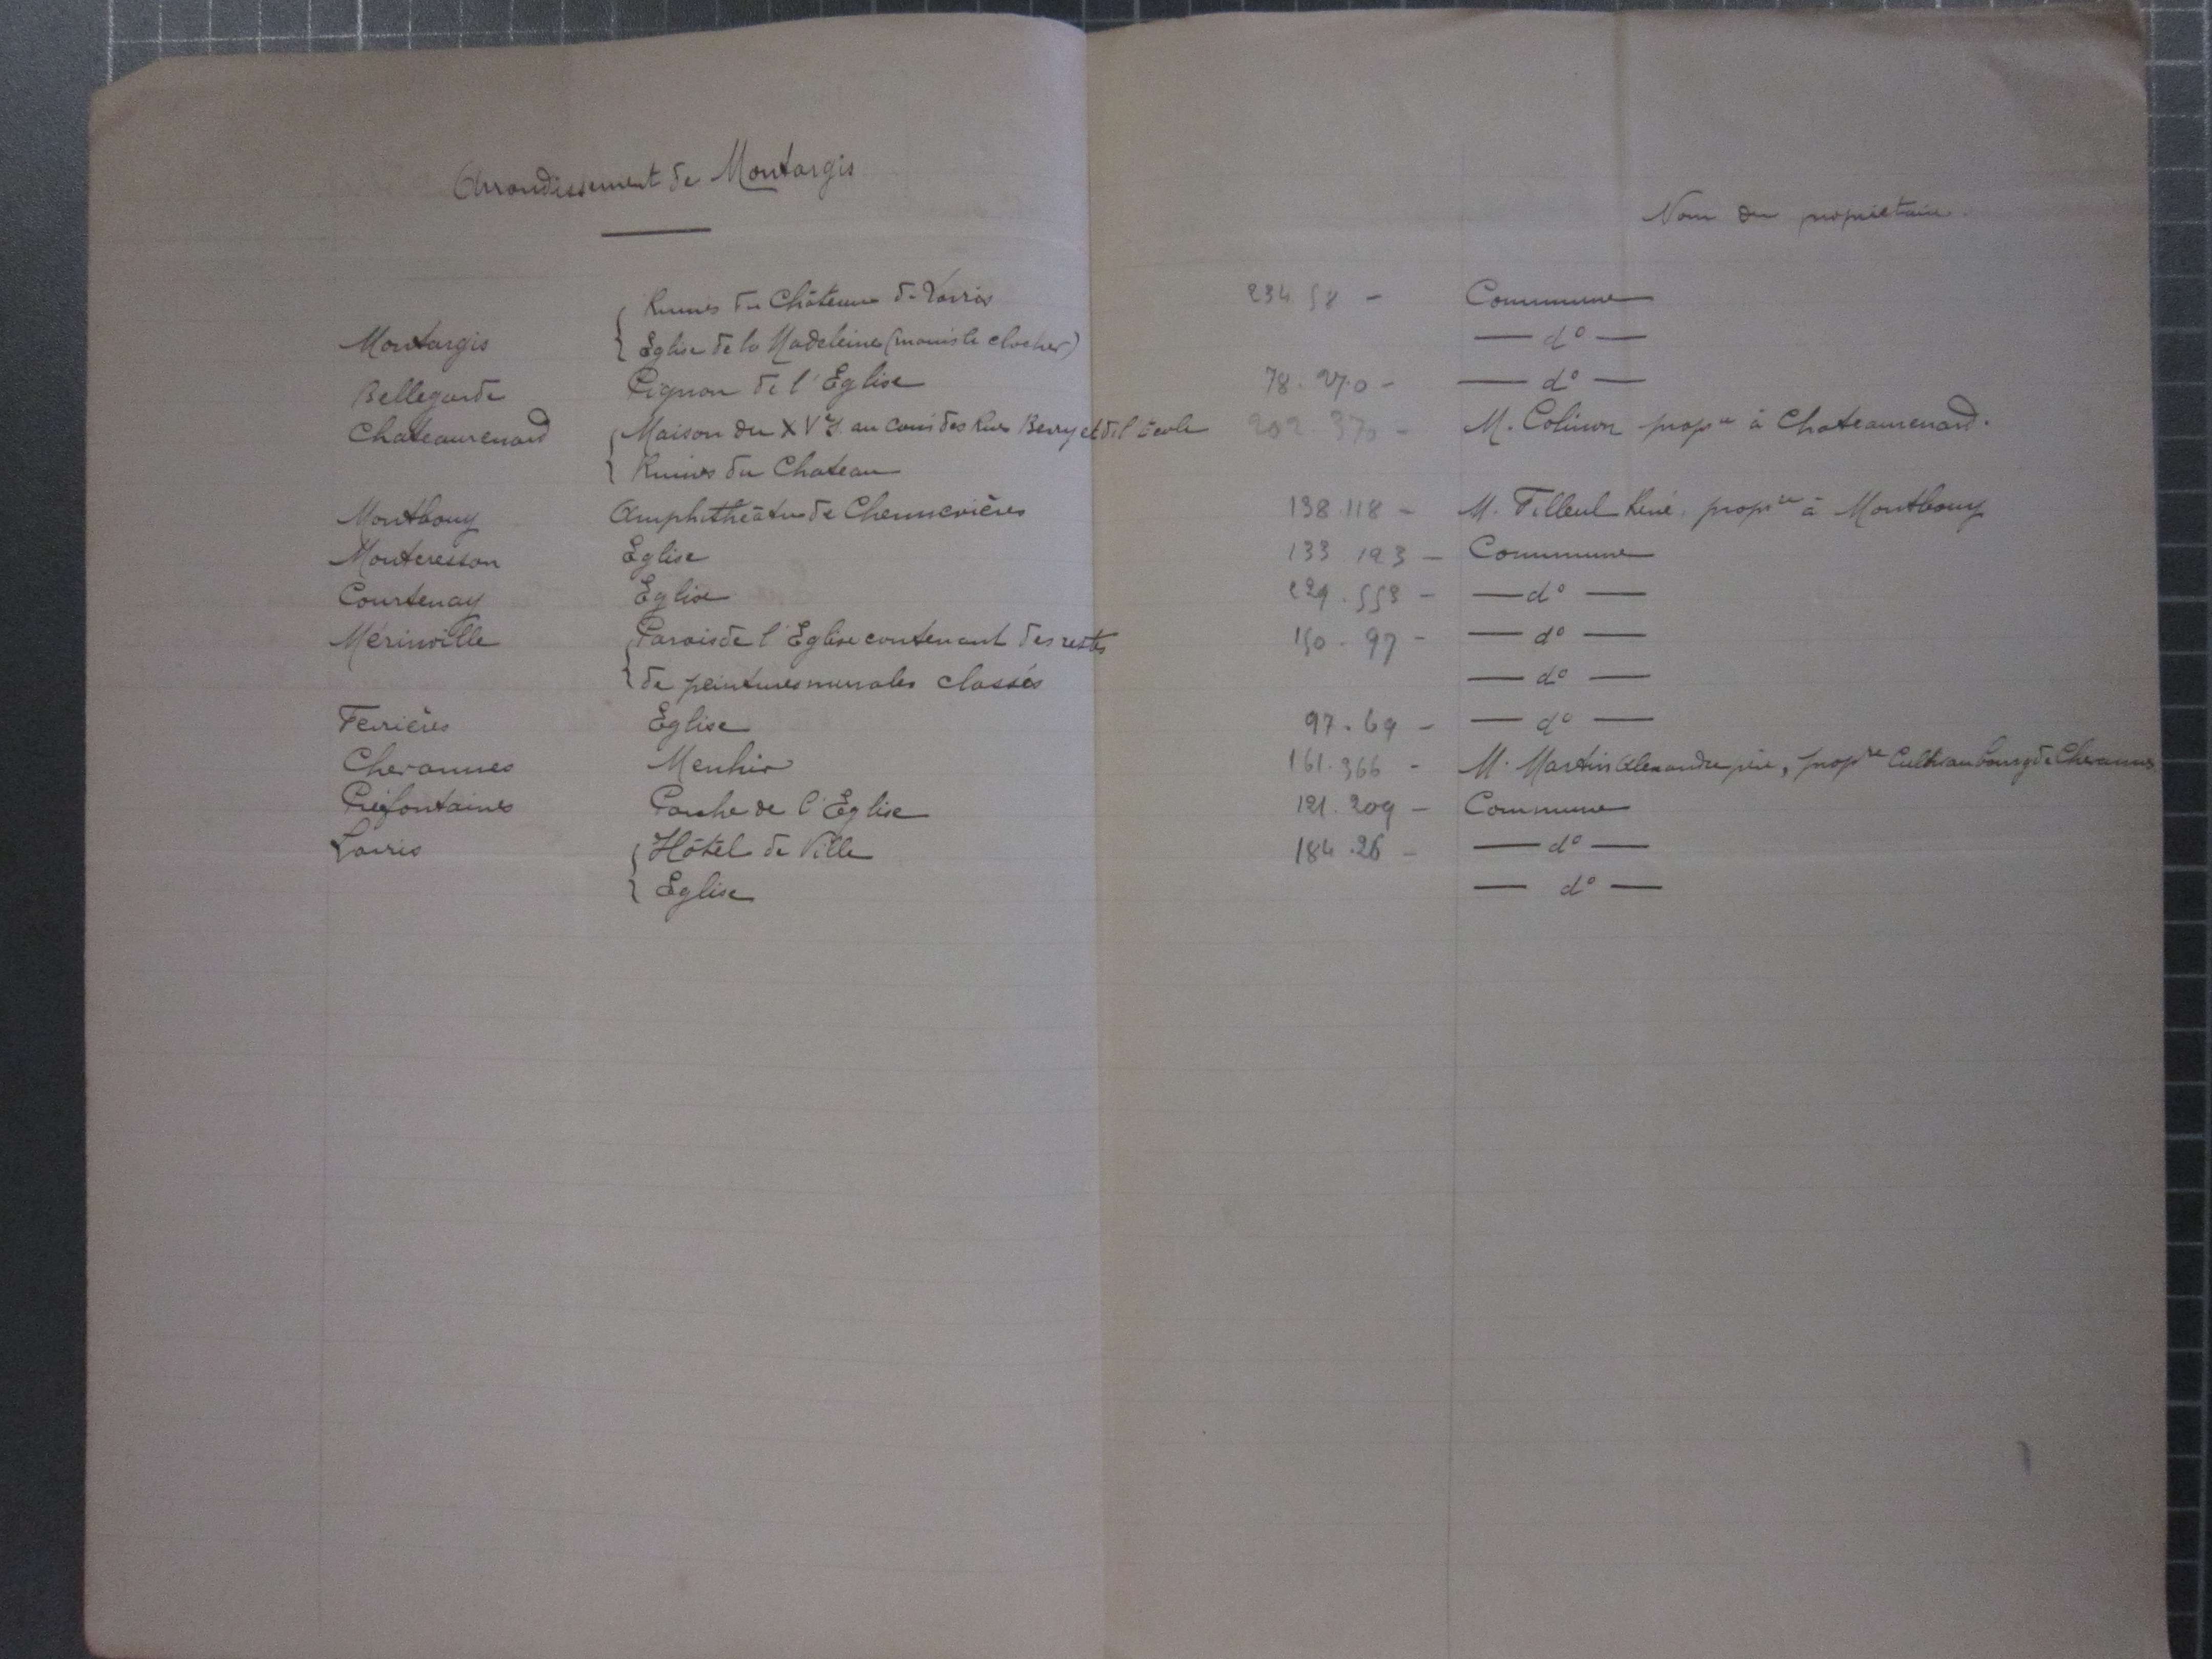 Arrondissement de Montargis
Nom du propriétaire.
Ruines du Château de Lorris 234.58 - Commune
Montargis Eglise de la Madeleine (moins le clocher) — d° —
Bellegarde Pignon de l'Eglise 78.270 - — d° —
Chateaurenard Maison du XVe S. au coin des Rues Berry et de l'Ecole 202.370 - M. Colinon propre à Chateaurenard.
Ruines du Chateau
Montbouy Amphithéâtre de Chennevières 138.118 - M. Tilleul René, propre à Montbouy
Montcresson Eglise 133.193 - Commune
Courtenay Eglise 229.553 - — d° —
Mérinville Parois de l'Eglise contenant des restes 150.97 - — d° —
de peintures murales classés — d° —
Ferrières Eglise 97.69 - — d° —
Chevannes Menhir 161.366 - M. Martin Alexandre père, propre Cultr au bourg de Chevannes
Préfontaines Porche de l'Eglise 121.209 - Commune
Lorris Hôtel de Ville 184.26 - — d° —
Eglise — d° —